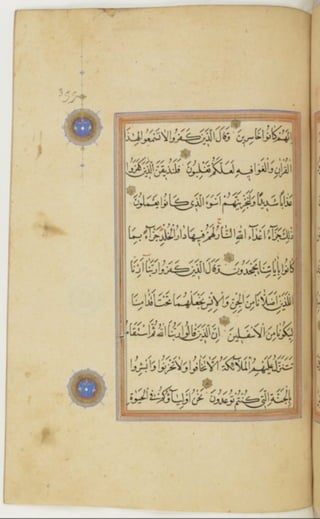 إنهم كانوا خاسرين وقال الذين كفروا لا تسمعوا لهذا
القرآن والغوا فيه لعلكم تغلبون فلنذيقن الذين كفروا
عذابا شديدا ولنجزينهم أسوء الذي كانوا يعملون
ذلك جزآء أعداء الله النار لهم فيها دار الخلد جزآء بما
كانوا بآياتنا يجحدون وقال الذين كفروا ربنا أرنا
اللذين أضلانا من الجن والإنس نجعلهما تحت أقدامنا
ليكونا من الأسفلين إن الذين قالوا ربنا الله ثم استقاموا
تتنزل عليهم الملآئكة ألا تخافوا ولا تحزنوا وأبشروا
بالجنة التي كنتم توعدون نحن أوليآؤكم في الحيوة